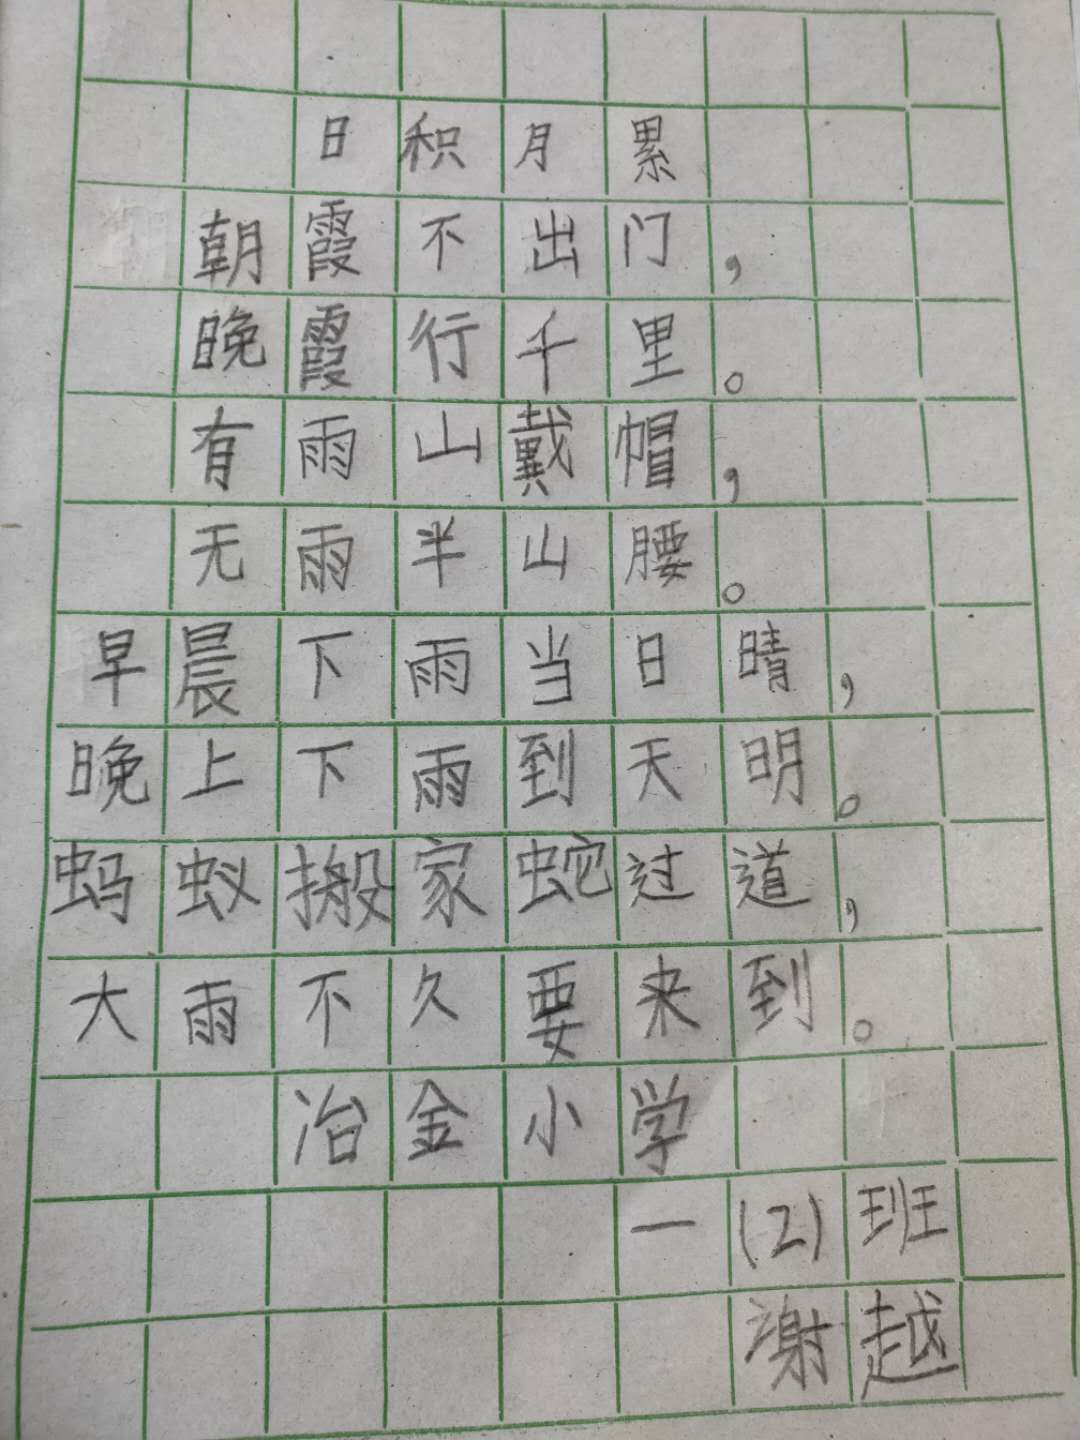 日积月累
朝霞不出门，
晚霞行千里。
有雨山戴帽，
无雨半山腰。
早晨下雨当日晴，
晚上下雨到天明。
蚂蚁搬家蛇过道，
大雨不久要来到。
冶金小学
一(2)班
谢越